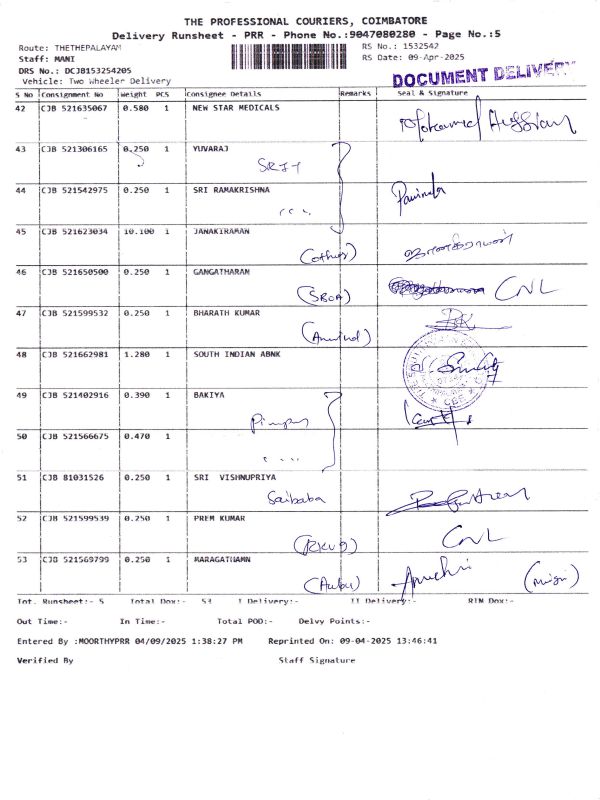 THE PROFESSIONAL COURIERS, COIMBATORE
Delivery Runsheet - PRR - Phone No.:9047080280 - Page No.:5
Route: THETHEPALAYAM
RS No.: 1532542
Staff: MANI
RS Date: 09-Apr-2025
DRS No.: DCJB153254205
Vehicle: Two Wheeler Delivery
DOCUMENT DELIVERY
S No Consignment No Weight PCS Consignee Details Remarks Seal & Signature
42 CJB 521635067 0.580 1 NEW STAR MEDICALS
Mohamed Hussian
43 CJB 521306165 0.250 1 YUVARAJ
44 CJB 521542975 0.250 1 SRI RAMAKRISHNA
45 CJB 521623034 10.100 1 JANAKIRAMAN
(other) ஜானகிராமன்
46 CJB 521650500 0.250 1 GANGATHARAM
(SBOA) CNL
47 CJB 521599532 0.250 1 BHARATH KUMAR
48 CJB 521662981 1.280 1 SOUTH INDIAN ABNK
49 CJB 521402916 0.390 1 BAKIYA
50 CJB 521566675 0.470 1
51 CJB 81031526 0.250 1 SRI VISHNUPRIYA
Saibaba
52 CJB 521599539 0.250 1 PREM KUMAR
CNL
53 CJB 521569799 0.250 1 MARAGATHAMN
Tot. Runsheet:- 5 Total Dox:- 53 I Delivery:- II Delivery:- RTN Dox:-
Out Time:- In Time:- Total POD:- Delvy Points:-
Entered By :MOORTHYPRR 04/09/2025 1:38:27 PM Reprinted On: 09-04-2025 13:46:41
Verified By Staff Signature